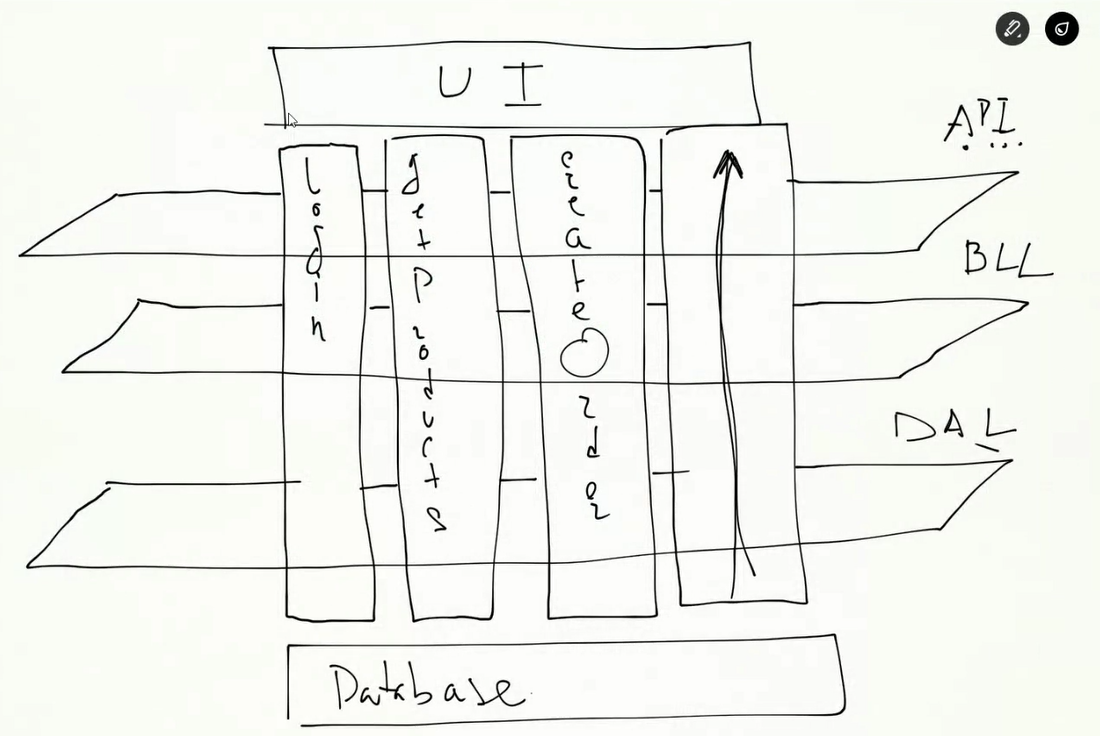 UI
API
BLL
DAL
Login
getProducts
createOrder
Database